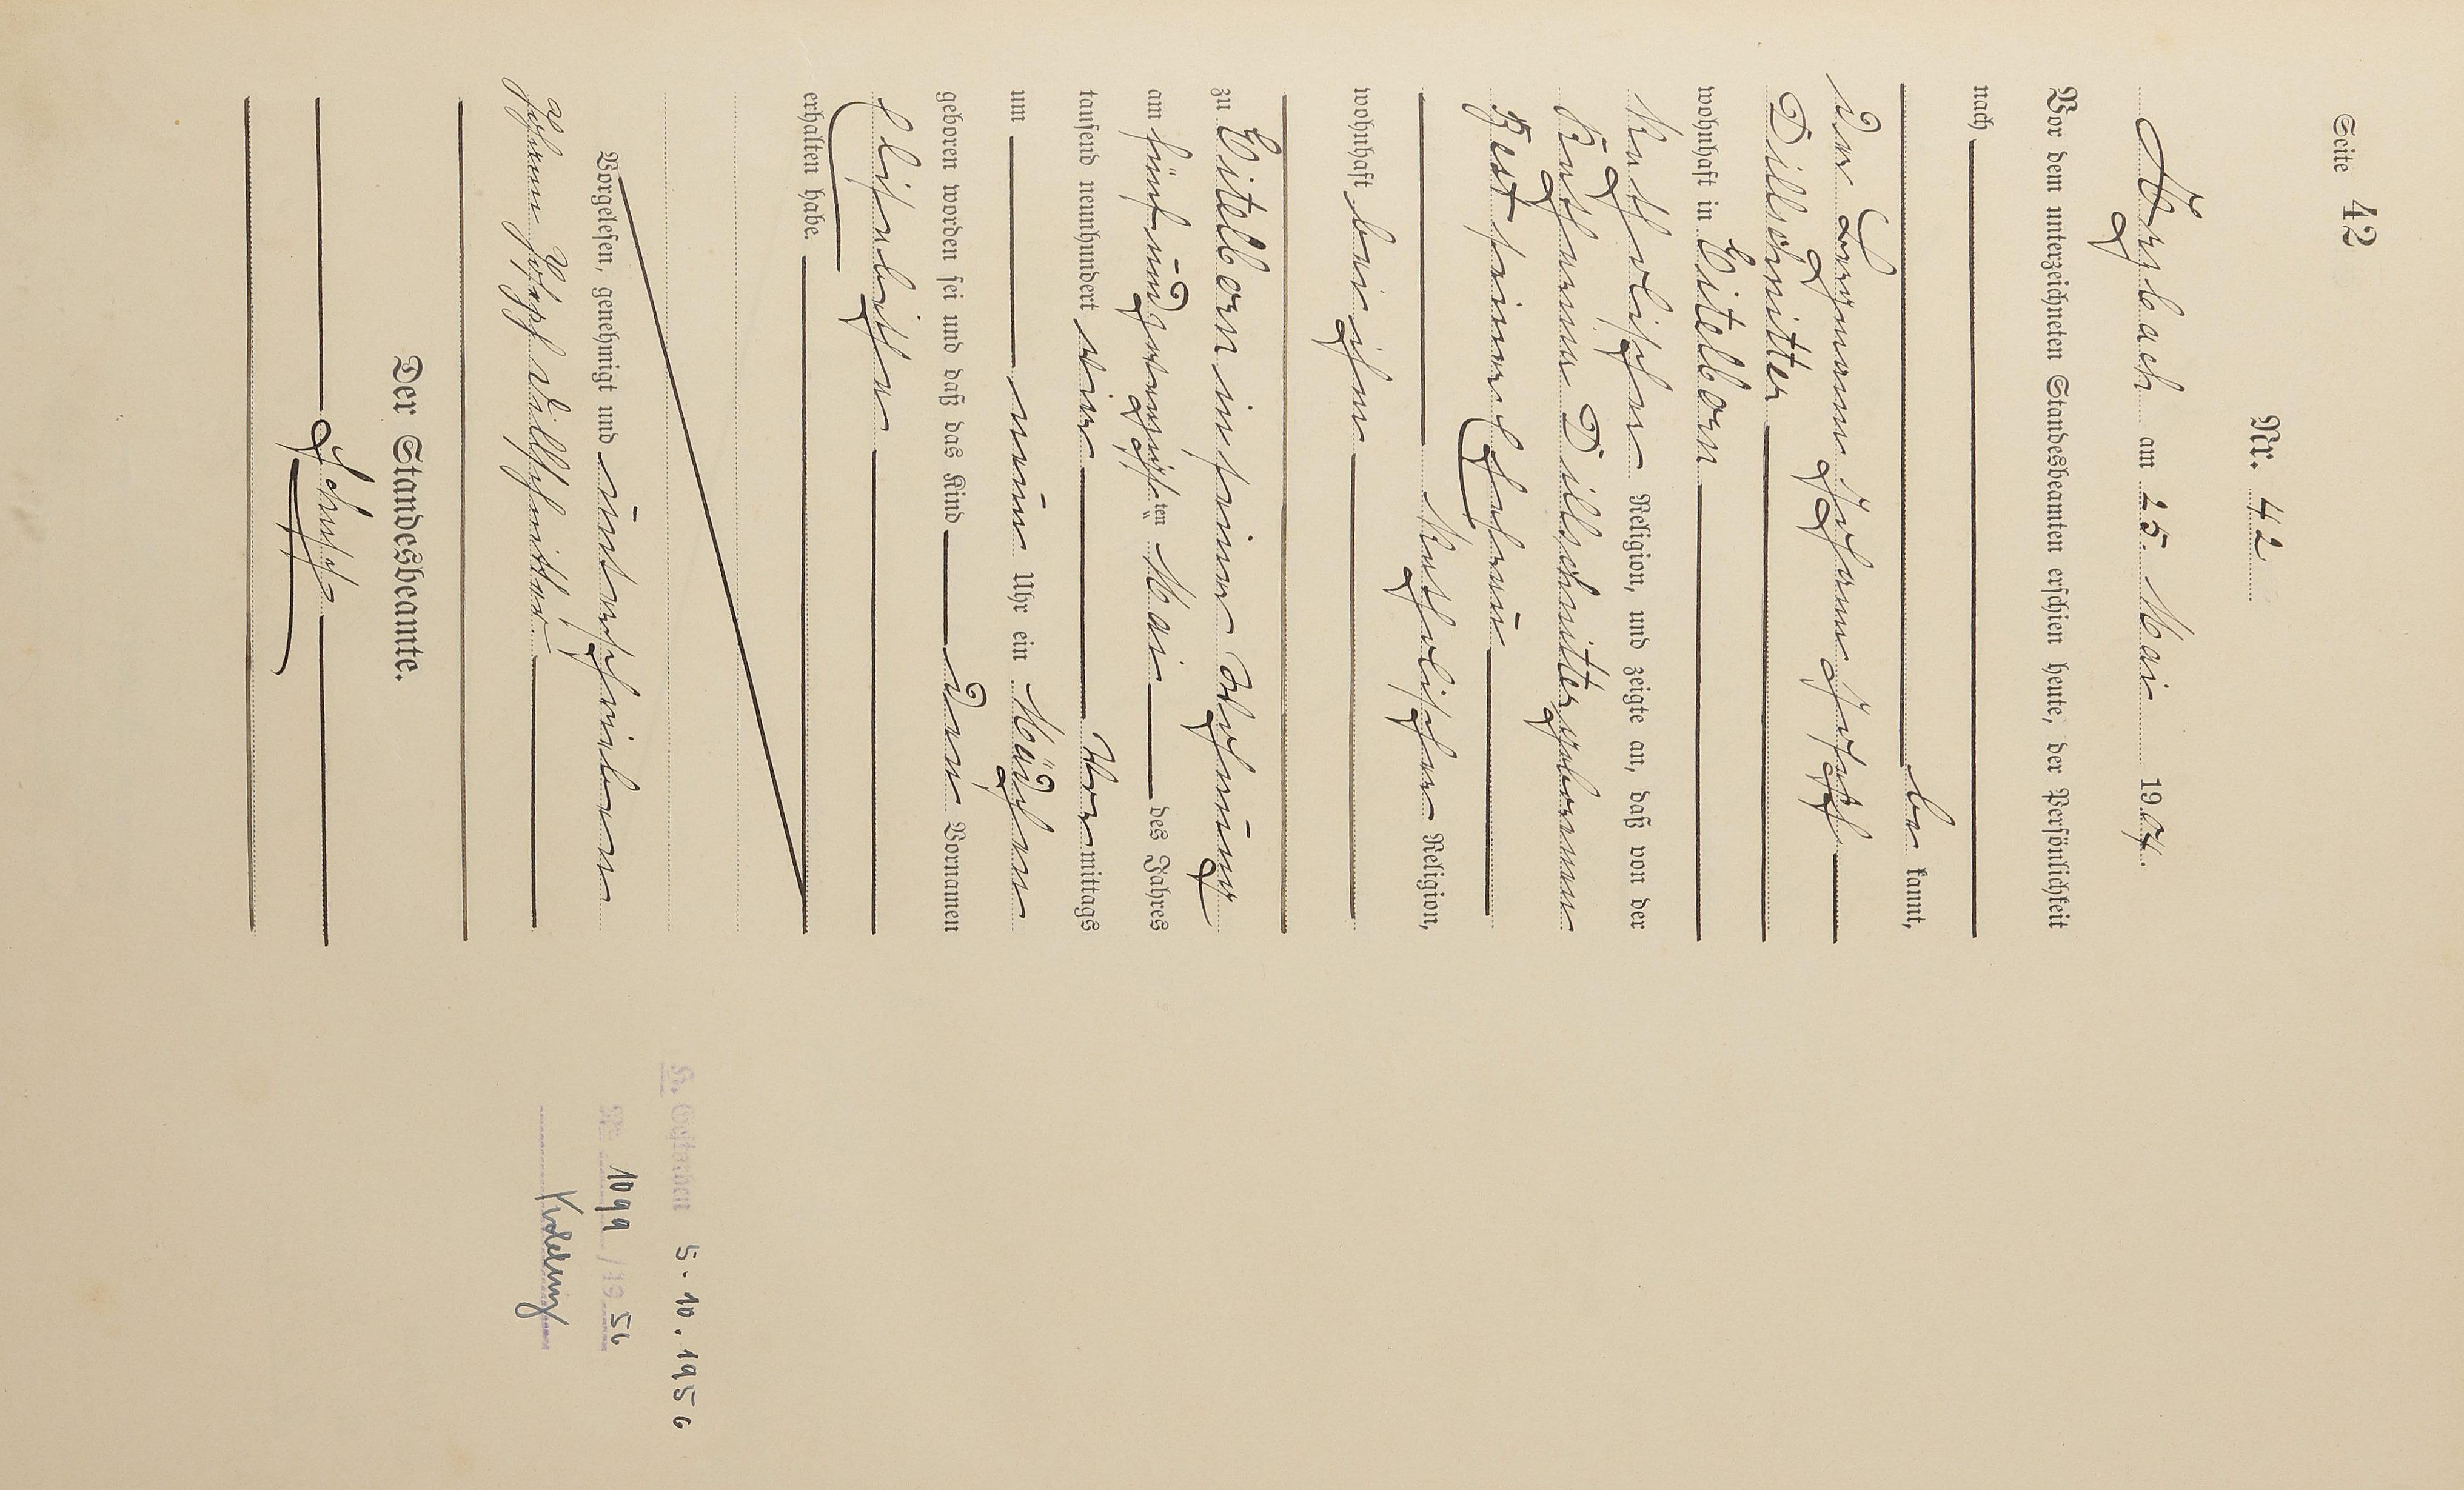 Seite 42
Nr. 42
Arzbach am 25. Mai 1904.
Vor dem unterzeichneten Standesbeamten erschien heute, der Persönlichkeit
nach
be kannt,
der Bergmann Johann Joseph
Dillschnitter
wohnhaft in Eitelborn
katholischer Religion, und zeigte an, daß von der
Katharina Dillschnitter geborenen
Best seiner Ehefrau
katholischer Religion,
wohnhaft bei ihm
zu Eitelborn in seiner Wohnung
am fünfundzwanzigsten Mai des Jahres
tausend neunhundert vier Vormittags
um neun Uhr ein Mädchen
geboren worden sei und daß das Kind den Vornamen
Elisabetha
erhalten habe.
Vorgelesen, genehmigt und unterschrieben
Johann Joseph Dillschnitter
Der Standesbeamte.
Gestorben 5.10.1956
Nr. 1099 / 1956